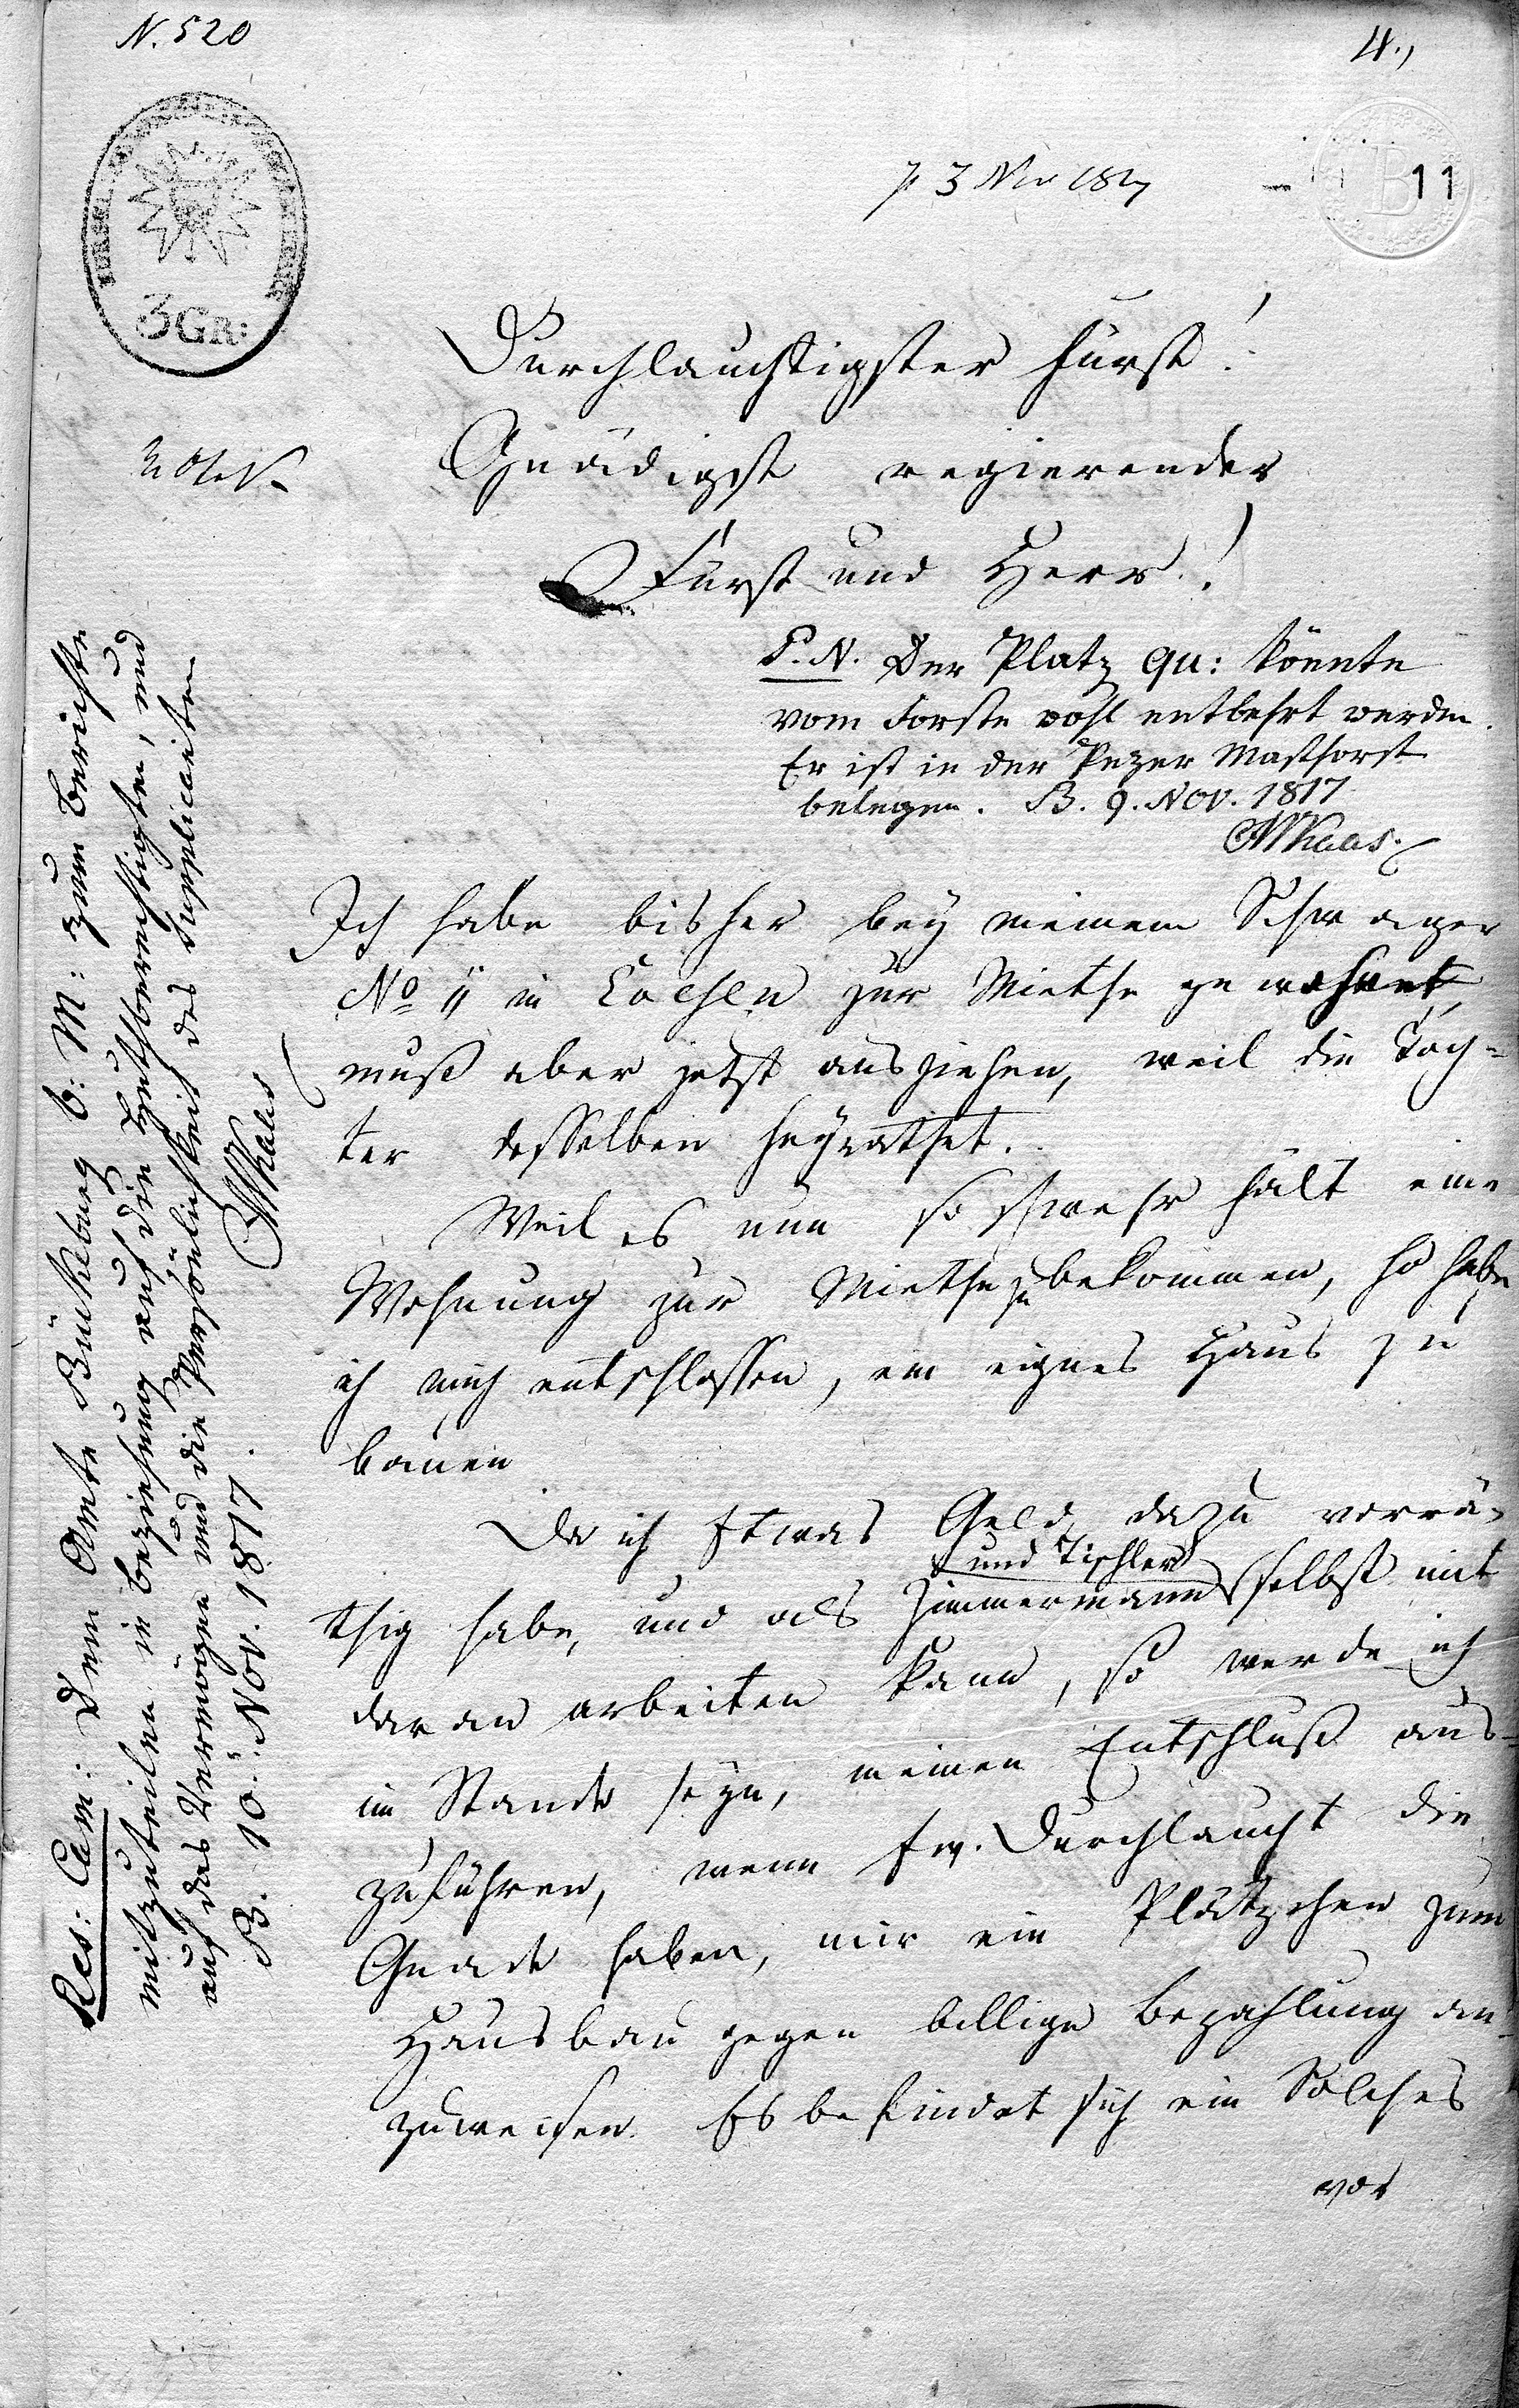 N. 520
4.,
3 Nov 1817
11
B
3 GR:
Durchlauchtigster Fürst!
Gnädigst regierender
Fürst und Herr!
P. N. Der Platz qu: könnte
vom Forste wohl entbehrt werden.
Er ist in der Pezer Mastforst
belegen. B. 9. Nov. 1817
Ich habe bisher bey meinem Schwager
No 11 in zur Miethe gewohnet,
muß aber jetzt ausziehen, weil die Toch=
ter desselben heyrathet.
Weil es nun so schwehr hält eine
Wohnung zur Miethe zu bekommen, so habe
ich mich entschlossen, ein eignes Haus zu
bauen
Da ich Etwas Geld dazu vorrä=
thig habe, und als Zimmermann und Tischler selbst mit
daran arbeiten kann, so werde ich
im Stande seyn, meinen Entschluß aus=
zuführen, wenn Ew. Durchlaucht die
Gnade haben, mir ein Plätzchen zum
Hausbau gegen billige Bezahlung an=
zuweisen. Es befindet sich ein Solches
vor
Res: Cam: Dem Amte Bückeburg b: M: zum Berichte
mitzuteilen in beziehung auf die Huthberechtigten, und
auf das Vermögen und die Persönlichkeit des Supplicanten
B. 10. Nov. 1817.